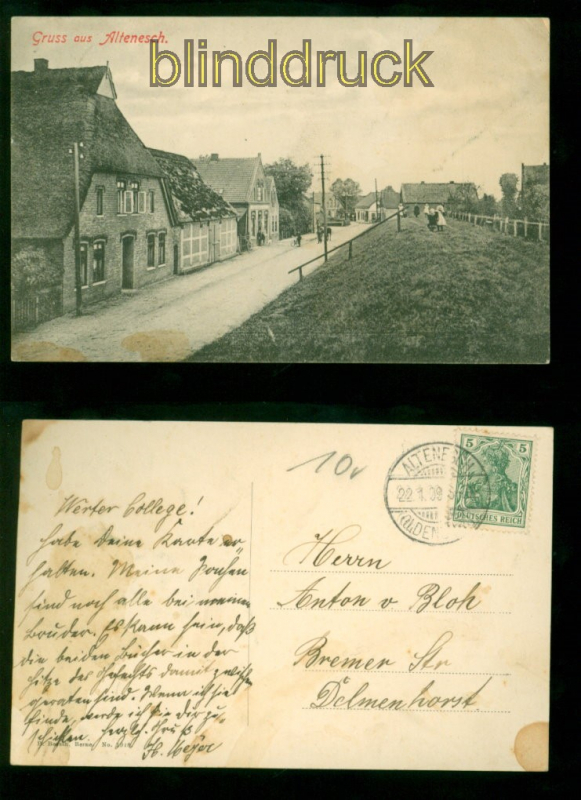 Gruss aus Altenesch.
blinddruck
10
ALTENESCH
22.1.09
(OLDEN
5 5
DEUTSCHES REICH
Werter College!
habe deine Karte er
halten. Meine Sachen
sind noch alle bei meinem
Bruder. Es kann sein, daß
die beiden Bücher in der
Hitze des Gefechts damit zwisch
geraten sind. Wenn ich sie
finde, werde ich sie dir zu
schicken. Gruß
H. Meyer
Herrn
Anton v. Bloh
Bremer Str
Delmenhorst.